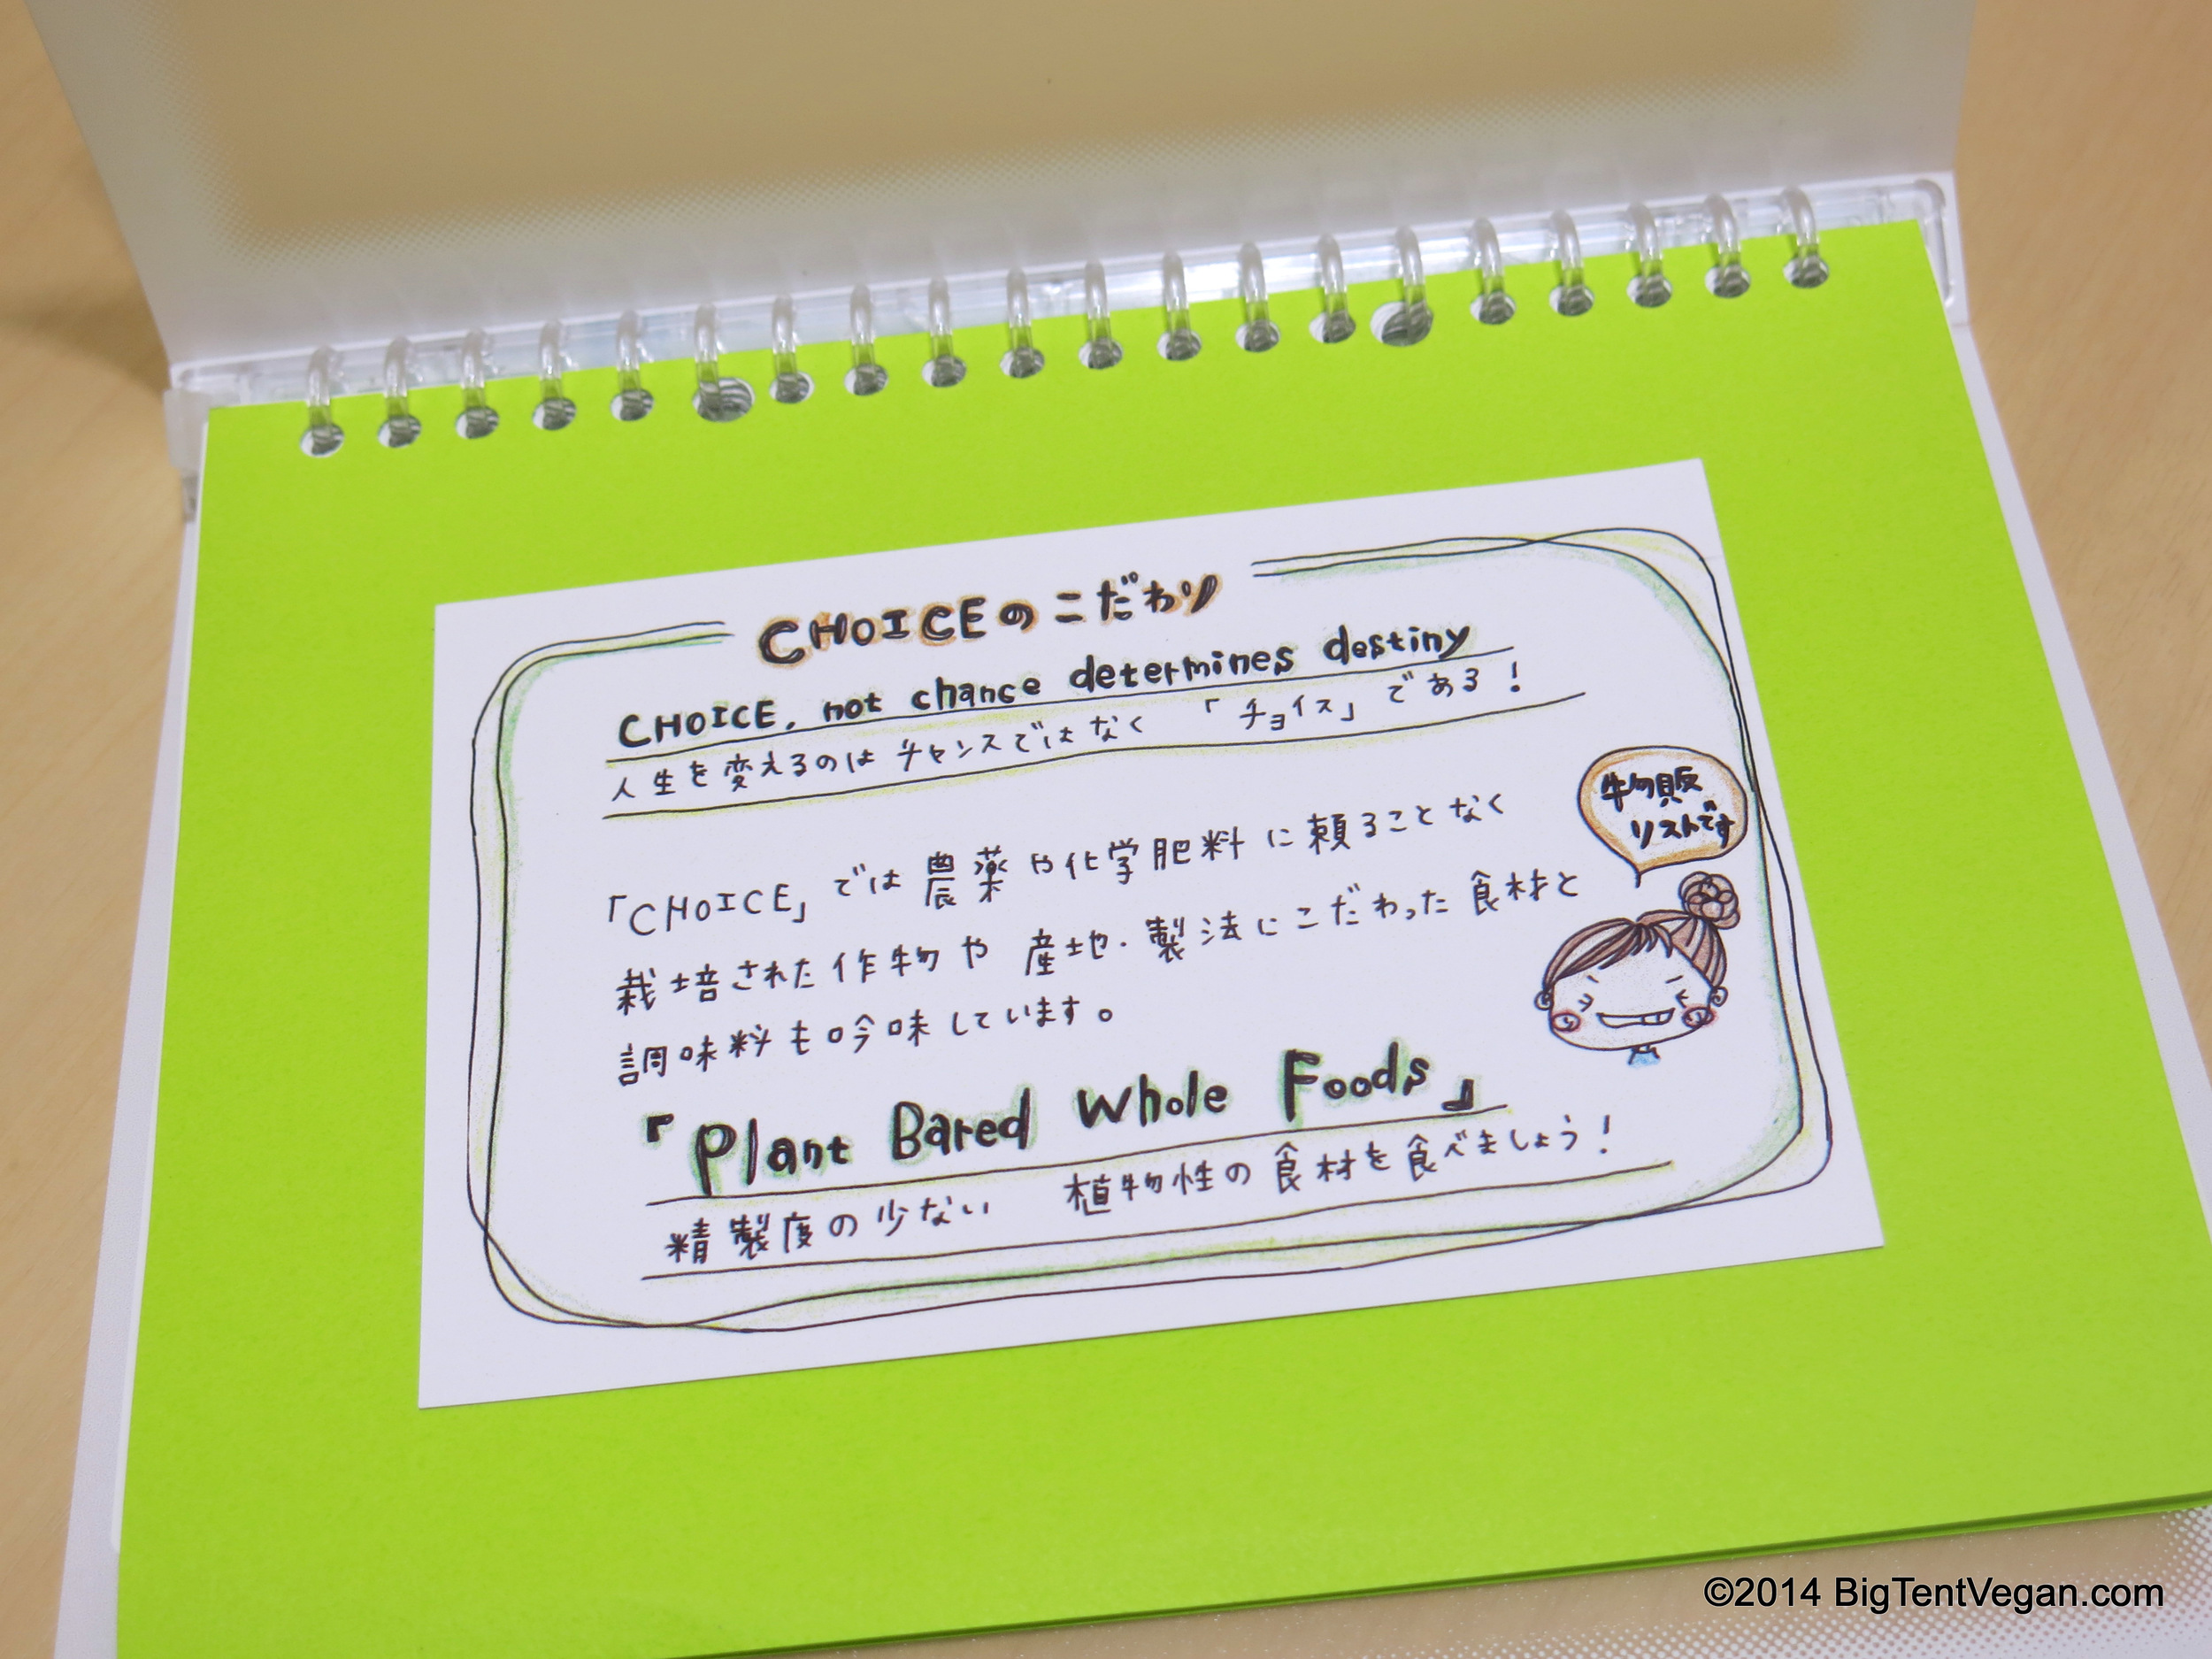 CHOICEのこだわり
CHOICE, not chance determines destiny
人生を変えるのはチャンスではなく 「チョイス」である!
物販
リストです
「CHOICE」では農薬や化学肥料に頼ることなく
栽培された作物や産地・製法にこだわった食材と
調味料も吟味しています。
「Plant Bared Whole Foods」
精製度の少ない 植物性の食材を食べましょう!
©2014 BigTentVegan.com